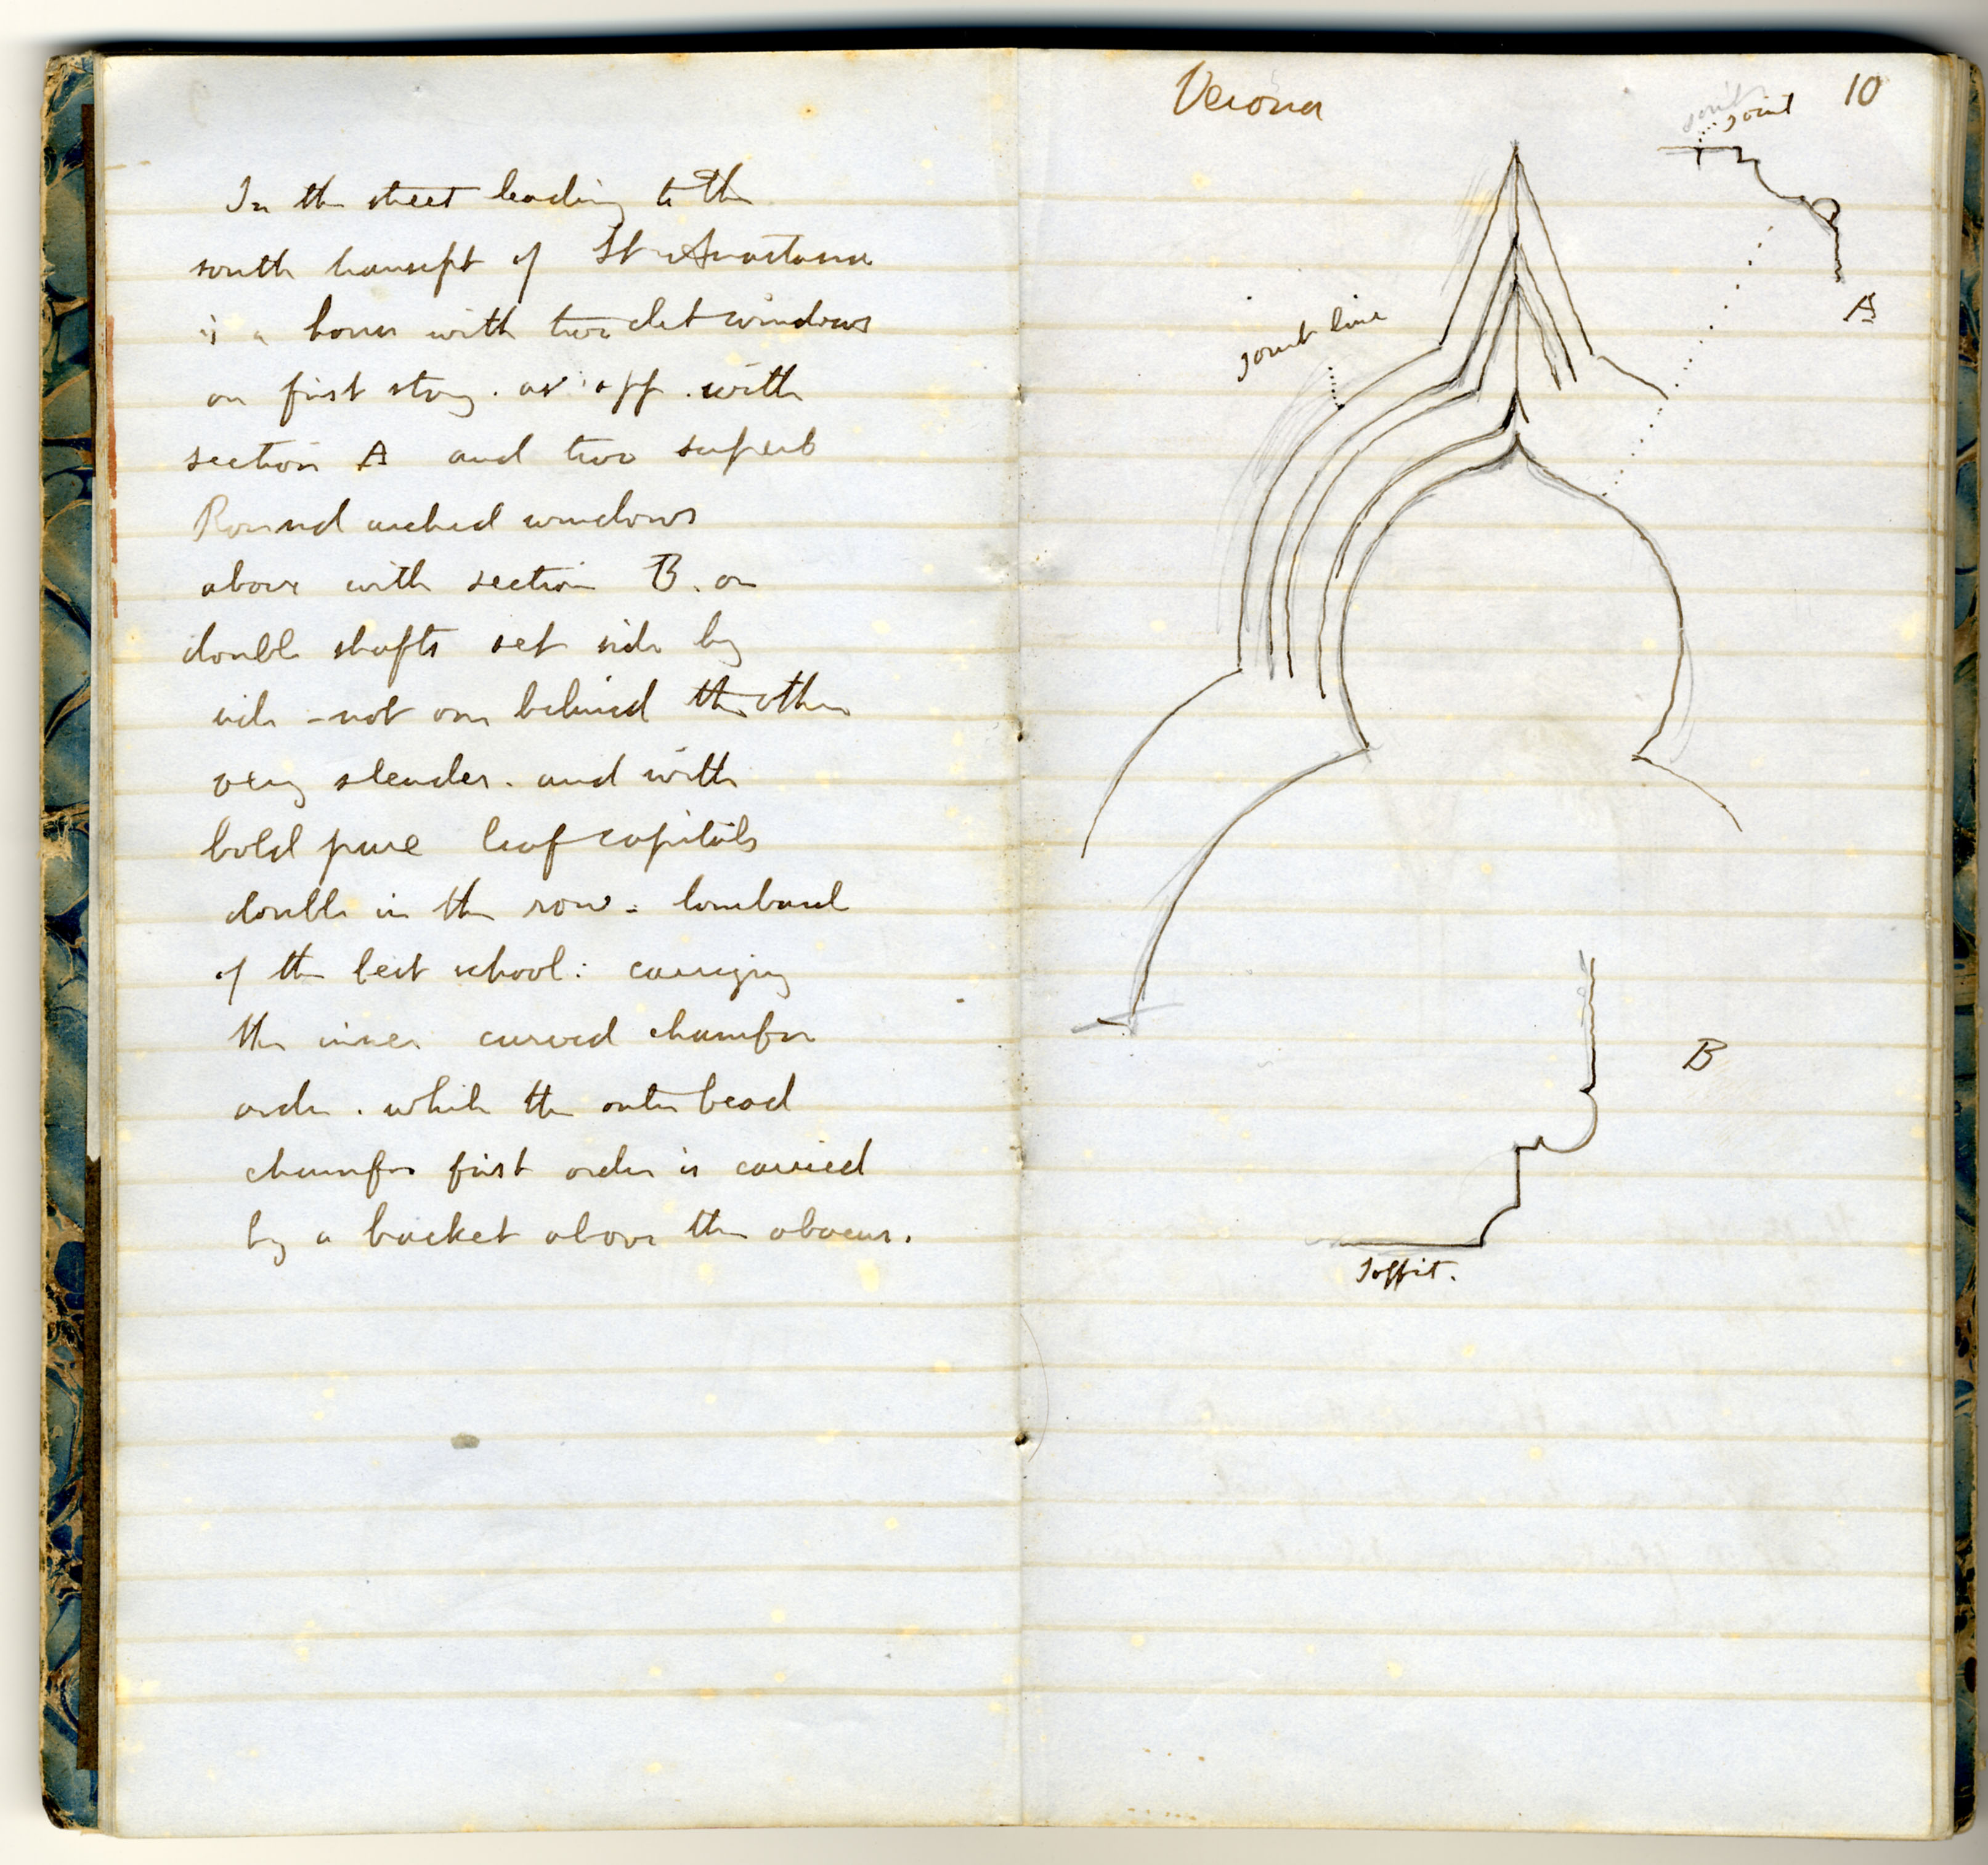 In the street leading to the
south transept of St Anastasia
is a house with two clet windows
on first story. as opp. with
section A and two superb
Round arched windows
above with section B. on
double shafts set side by
side - not one behind the other
very slender. and with
bold pure leaf capitals
double in the row = lombard
of the best school: carrying
the inner curved chamfer
order. while the outer bead
chamfer first order is carried
by a bracket above the abacus.
Verona
10
joint
joint
A
joint line
B
Soffit.